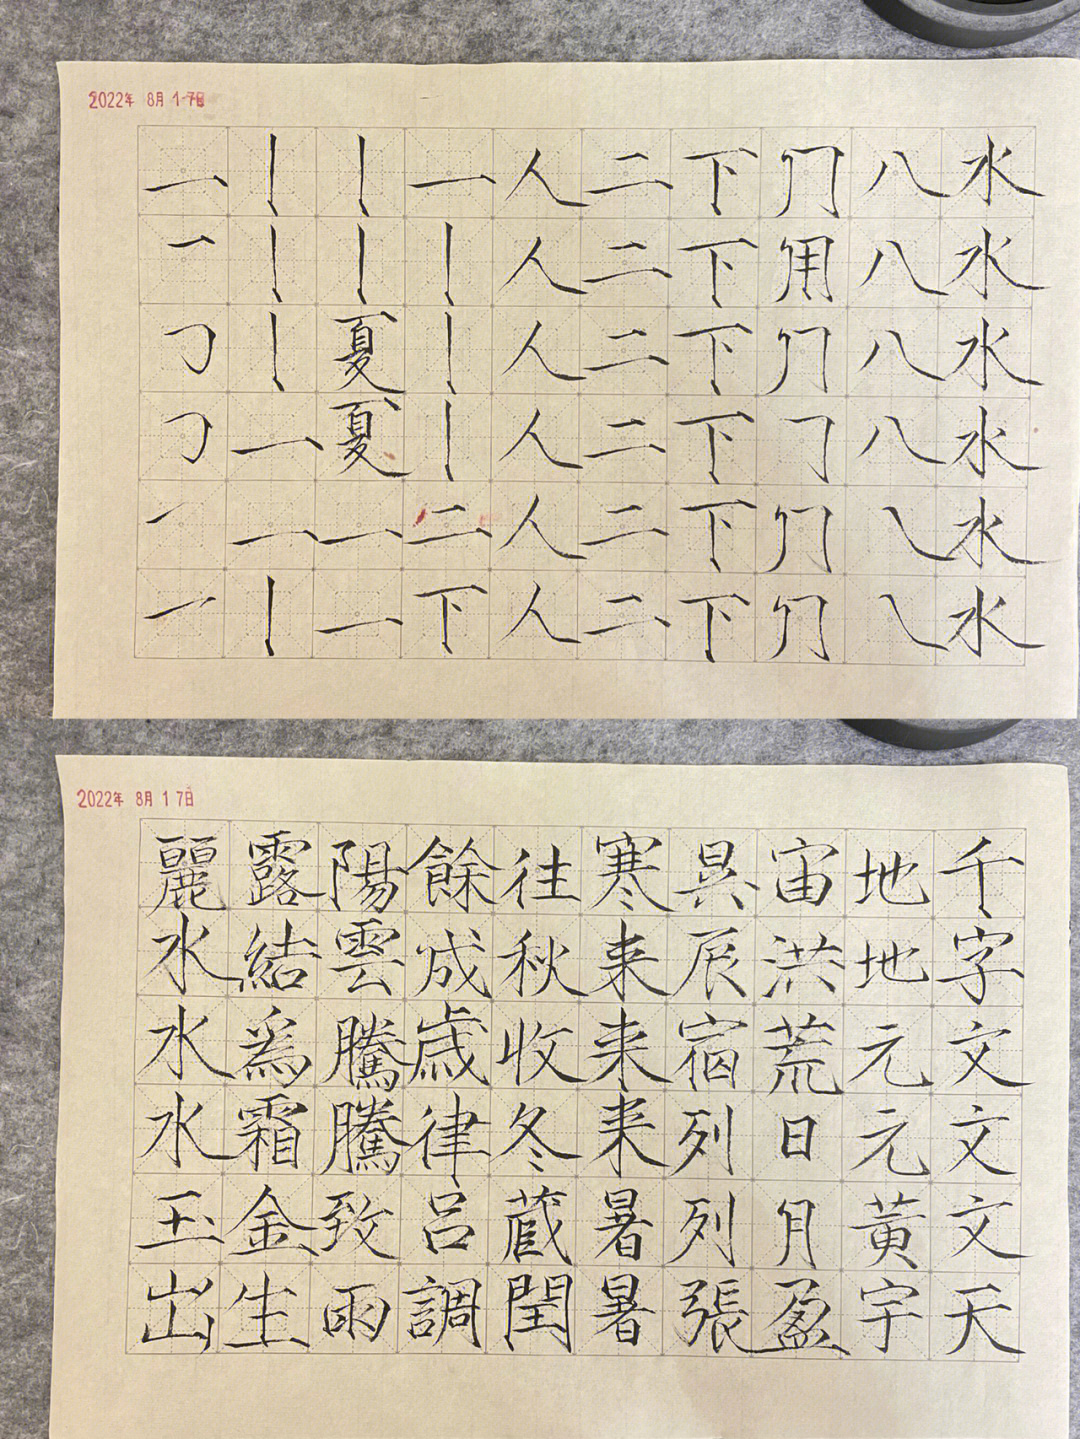 2022年 8月 17日
水水水水水水
八八八八
用
下下下下下下
二二二二二二
人人人人人人
一丨丨丨二下
丨丨夏夏一一
丨丨丨一一丨
一
2022年 8月 17日
千字文文文天
地地元元黃宇
宙洪荒日月盈
昃辰宿列列張
寒来来来暑暑
往秋收冬蔵閏
餘成歳律呂調
陽雲騰騰致雨
露結爲霜金生
麗水水水玉出